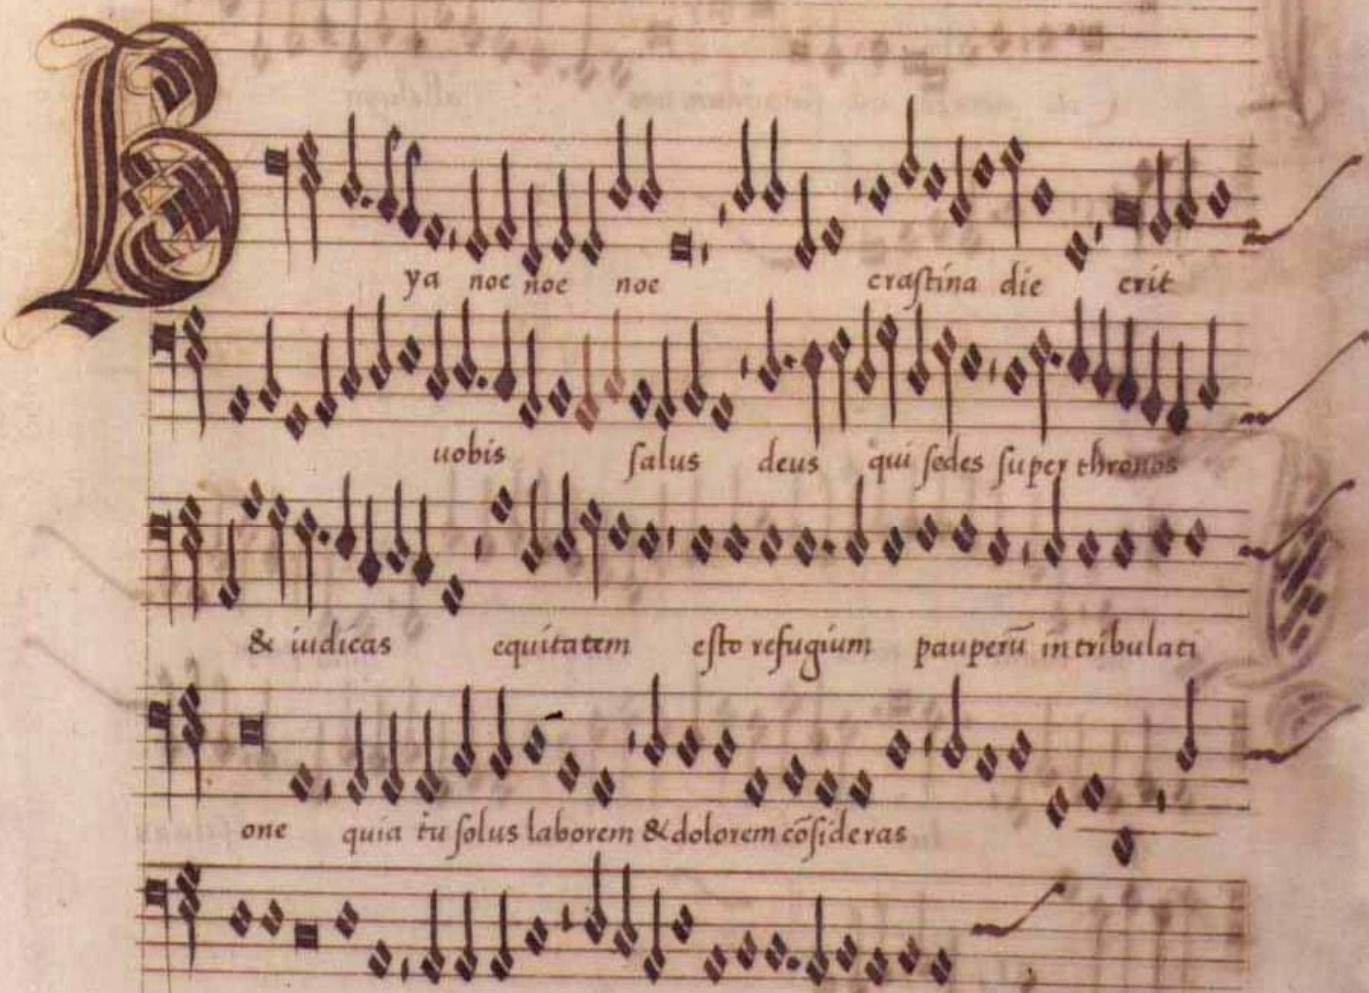 B
ya noe noe noe craſtina die erit
uobis ſalus deus qui ſedes ſuper thronos
& iudicas equitatem eſto refugium pauperū in tribulati
one quia tu ſolus laborem & dolorem cōſideras